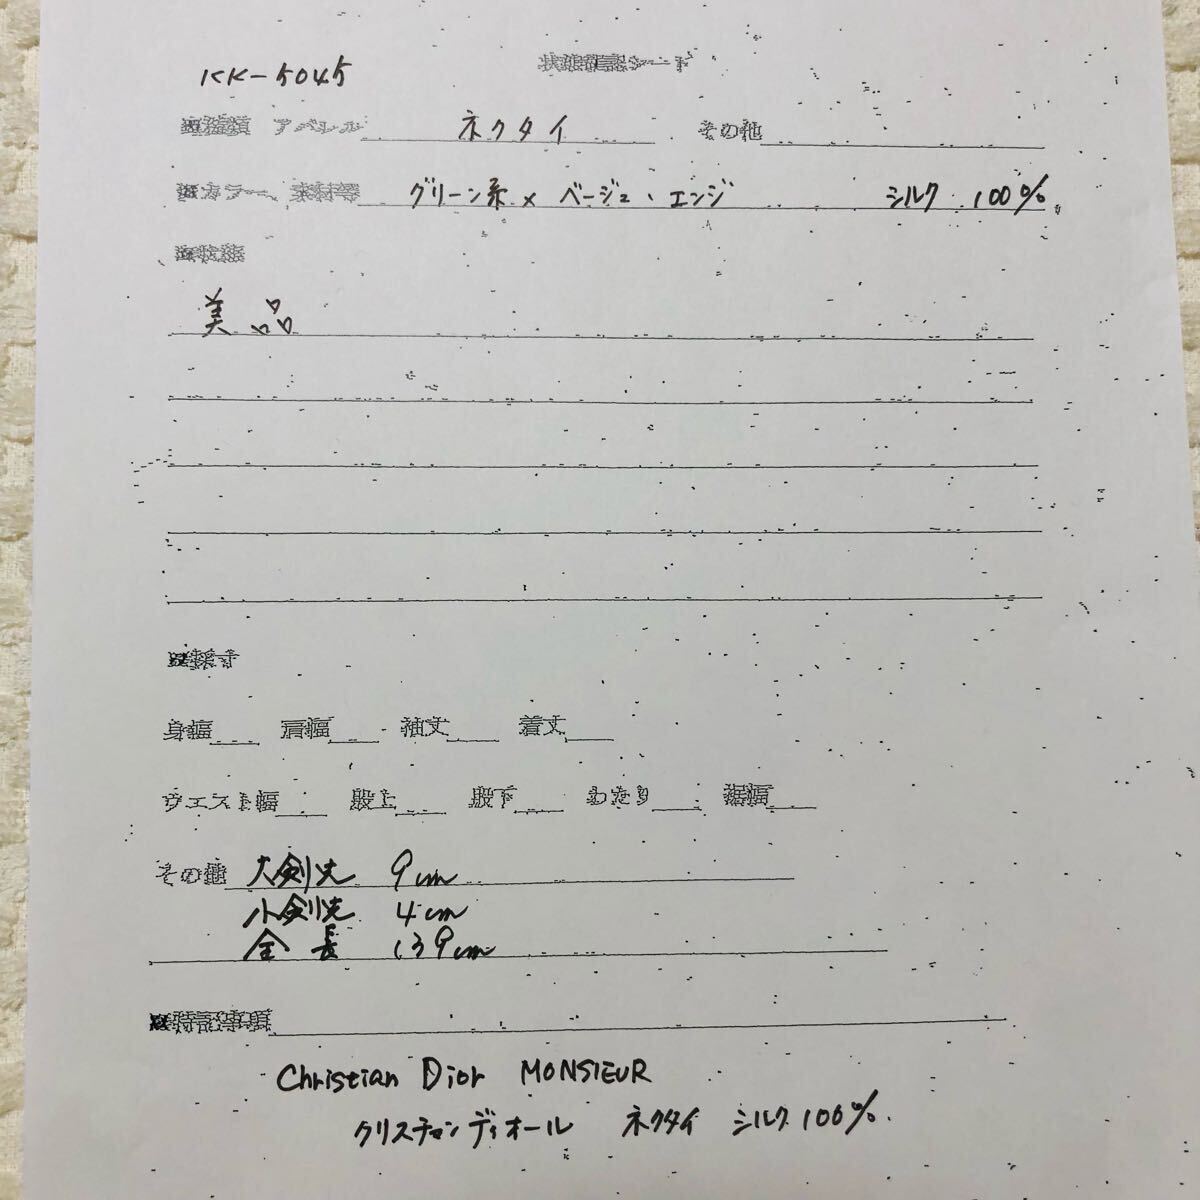 KK-5045
状態確認シート
種類 アパレル ネクタイ その他
カラー、素材等 グリーン系×ベージュ、エンジ シルク 100%
状態
美品
採寸
身幅 肩幅 袖丈 着丈
ウエスト幅 股上 股下 わたり 裾幅
その他 大剣先 9cm
小剣先 4cm
全長 139cm
特記事項
Christian Dior MONSIEUR
クリスチャンディオール ネクタイ シルク100%.